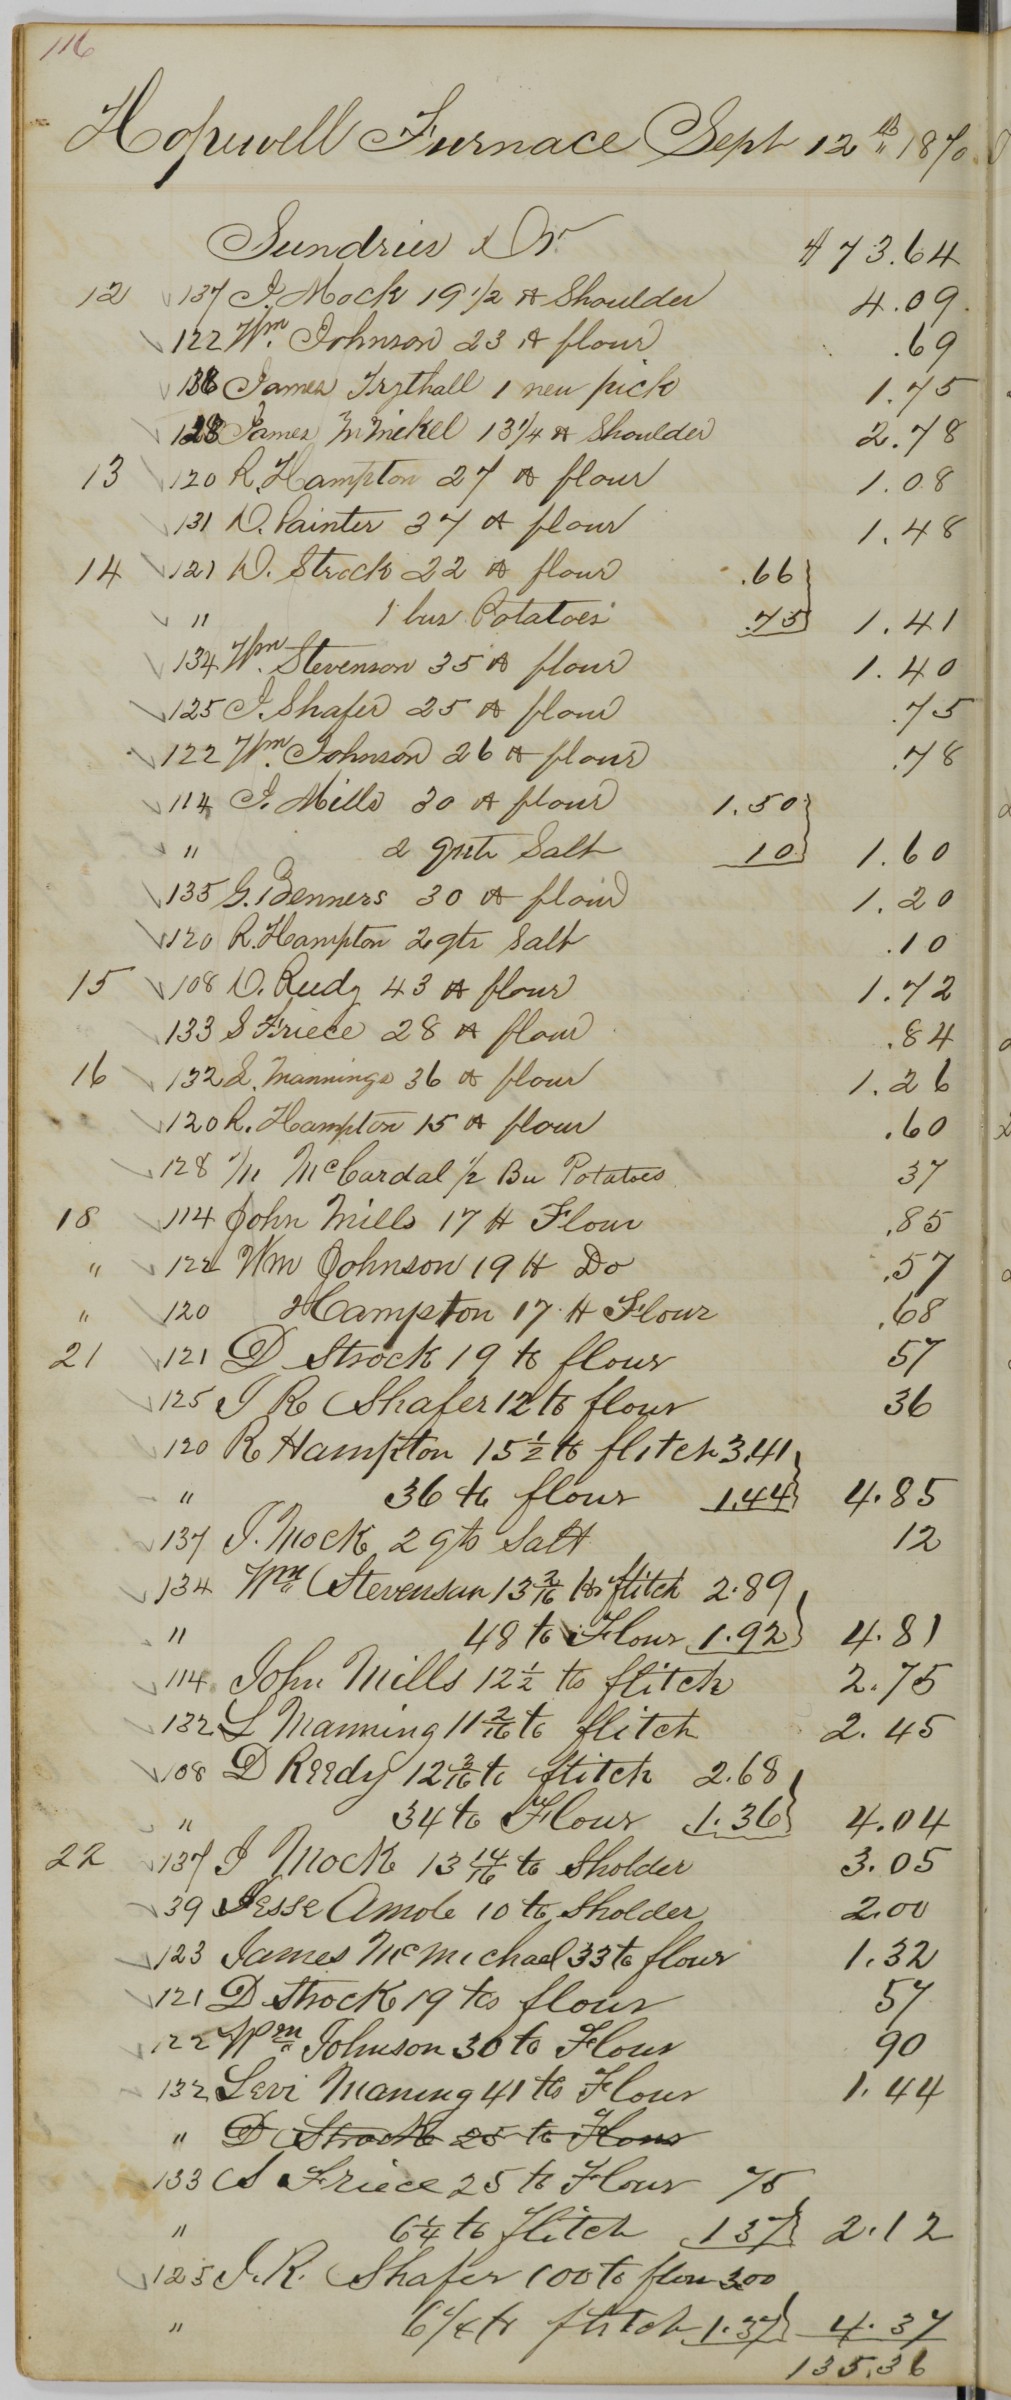 116
Hopewell Furnace Sept 12th 1870
Sundries Dr $73.64
12 137 J. Mock 19 1/2 # Shoulder 4.09
122 Wm. Johnson 23 # flour .69
136 James Trythall 1 new pick 1.75
128 James McMickel 13 1/4 # Shoulder 2.78
13 120 R. Hampton 27 # flour 1.08
131 D. Painter 37 # flour 1.48
14 121 D. Strock 22 # flour .66
" 1 bus Potatoes .75 1.41
134 Wm. Stevenson 35 # flour 1.40
125 J. Shafer 25 # flour .75
122 Wm. Johnson 26 # flour .78
114 J. Mills 30 # flour 1.50
" 2 qrts Salt 10 1.60
135 G. Benners 30 # flour 1.20
120 R. Hampton 2 qts Salt .10
15 108 D. Reedy 43 # flour 1.72
133 S Friece 28 # flour .84
16 132 L. Mannings 36 # flour 1.26
120 R. Hampton 15 # flour .60
128 McCardal 1/2 Bu Potatoes 37
18 114 John Mills 17 # Flour .85
" 122 Wm Johnson 19 # Do .57
" 120 Hampton 17 # Flour .68
21 121 D Strock 19 lb flour 57
125 J R Shafer 12 lb flour 36
120 R Hampton 15 1/2 lb flitch 3.41
" 36 lb flour 1.44 4.85
137 J. Mock 2 qts Salt 12
134 Wm Stevenson 13 2/16 lb flitch 2.89
" 48 lb Flour 1.92 4.81
114 John Mills 12 1/2 lb flitch 2.75
132 L Manning 11 2/16 lb flitch 2.45
108 D Reedy 12 3/16 lb flitch 2.68
" 34 lb Flour 1.36 4.04
22 137 J Mock 13 14/16 lb Sholder 3.05
39 Jesse Amole 10 lb Sholder 2.00
123 James McMichael 33 lb flour 1.32
121 D Strock 19 lbs flour 57
122 Wm Johnson 30 lb Flour 90
132 Levi Maning 41 lb Flour 1.44
" D Strock 25 lb Flour
133 S Friece 25 lb Flour 75
" 6 1/4 lb flitch 1 37 2.12
125 J. R. Shafer 100 lb flour 3.00
" 6 1/4 lb flitch 1.37 4.37
135.36